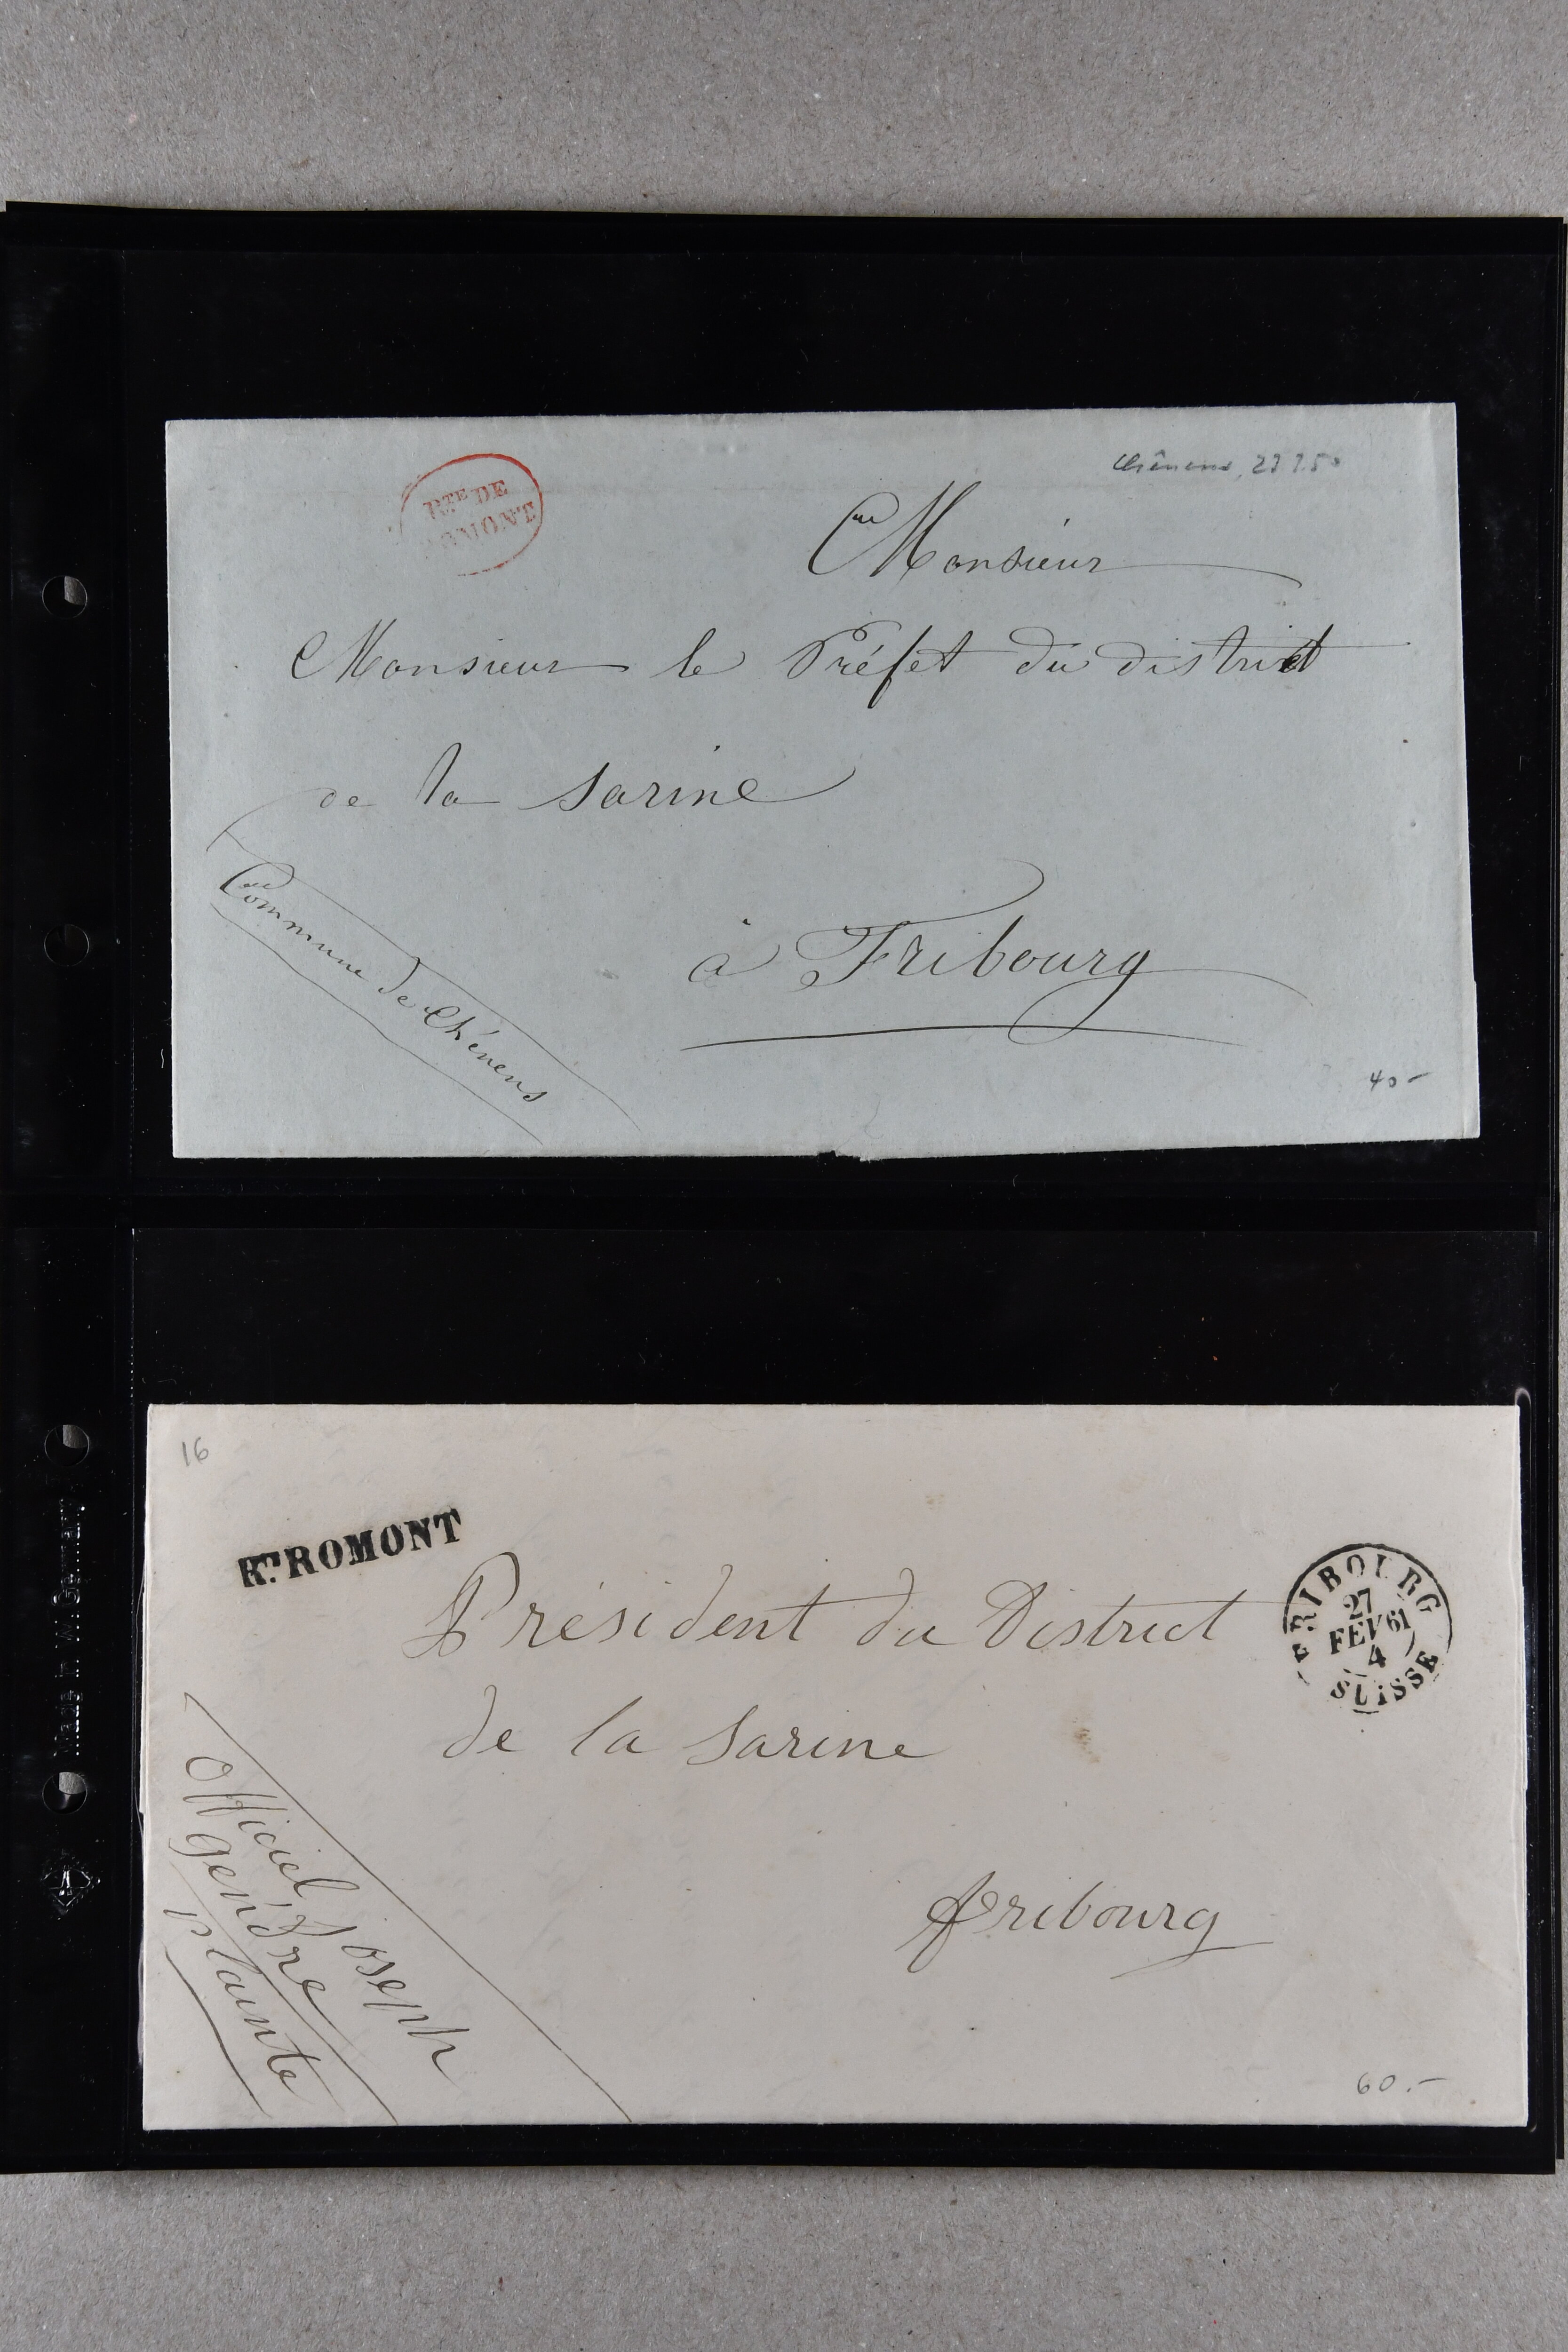 Chênens, 23 7.50
RTE DE
ROMONT
Monsieur
Monsieur le Préfet du district
de la Sarine
à Fribourg
Commune de Chénens
40 -
16
RTE ROMONT
FRIBOURG
27
FEV 61
4
SUISSE
Président du District
de la Sarine
fribourg
Officiel Joseph
gendre
plainte
60.-
Made in W. Germany